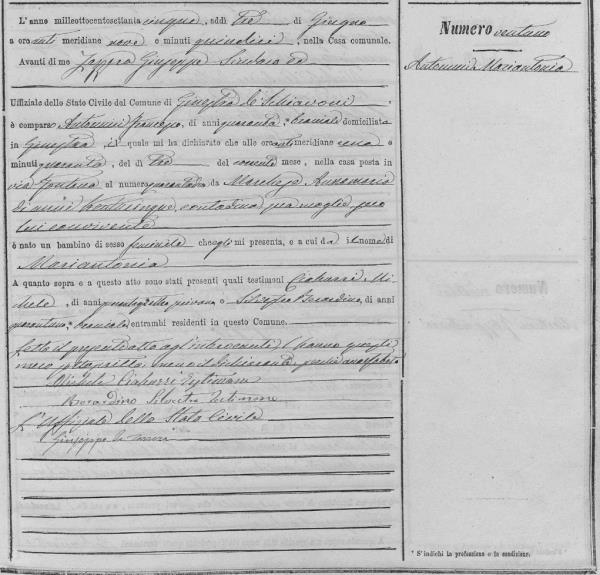 L'anno milleottocentosettanta cinque, addì tre di Giugno
a ore anti meridiane nove e minuti quindici, nella Casa comunale.
Avanti di me Zappone Giuseppe Sindaco ed
Uffiziale dello Stato Civile del Comune di Ginestra de' Schiavoni
è comparso Antonini Francesco, di anni quaranta, bracciale domiciliato
in Ginestra, il quale mi ha dichiarato che alle ore antimeridiane una e
minuti quaranta, del dì tre del corrente mese, nella casa posta in
via Fontana al numero da Annamaria
di anni trentacinque, contadina, sua moglie, seco
lui convivente
è nato un bambino di sesso femminile che egli mi presenta, e a cui dà il nome di
Mariantonia
A quanto sopra e a questo atto sono stati presenti quali testimoni Ciaburri Mi-
chele, di anni e Silvestro Berardino, di anni
quarantuno, bracciale, entrambi residenti in questo Comune.
Letto il presente atto agl'intervenuti, hanno questi
meco sottoscritto, meno il dichiarante, perché analfabeta
Michele Ciaburri Testimone
Berardino Silvestro Testimone
L'Uffiziale dello Stato Civile
Giuseppe
Numero ventuno
Antonini Mariantonia
* S'indichi la professione o la condizione.